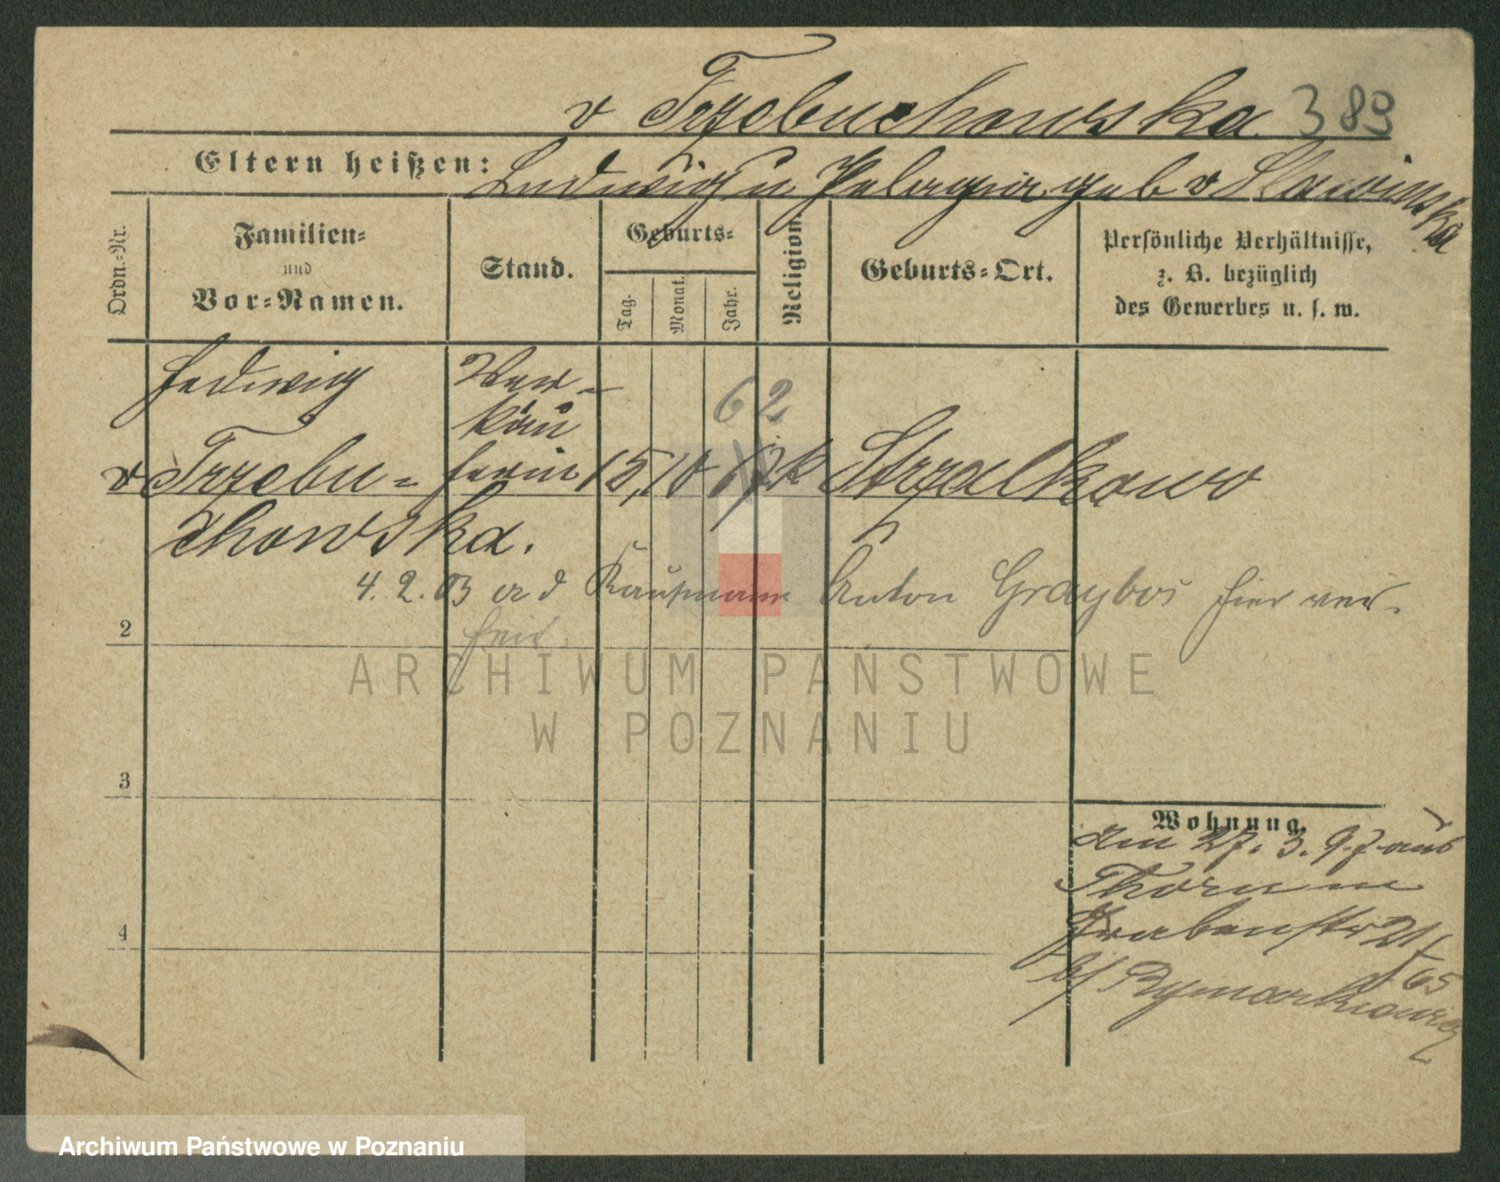 v Trzebuchowska 389
Eltern heißen: Ludwig u Pelagia geb v Slawinska
Ordn.-Nr.
Familien-
und
Vor-Namen.
Stand.
Geburts-
Tag.
Monat.
Jahr.
Religion.
Geburts-Ort.
Persönliche Verhältnisse,
z. B. bezüglich
des Gewerbes u. s. w.
Hedwig
v Trzebu-
chowska.
Ver-
käu
ferin
62
15, 10 k Strzalkowo
4. 2. 03 a d Kaufmann Anton hier ver-
heir.
2
3
4
Wohnung.
am 27. 3. 97 aus
Thorn in
Grabenstr 21
65
b/ Rymarkiewicz
ARCHIWUM PAŃSTWOWE
W POZNANIU
Archiwum Państwowe w Poznaniu